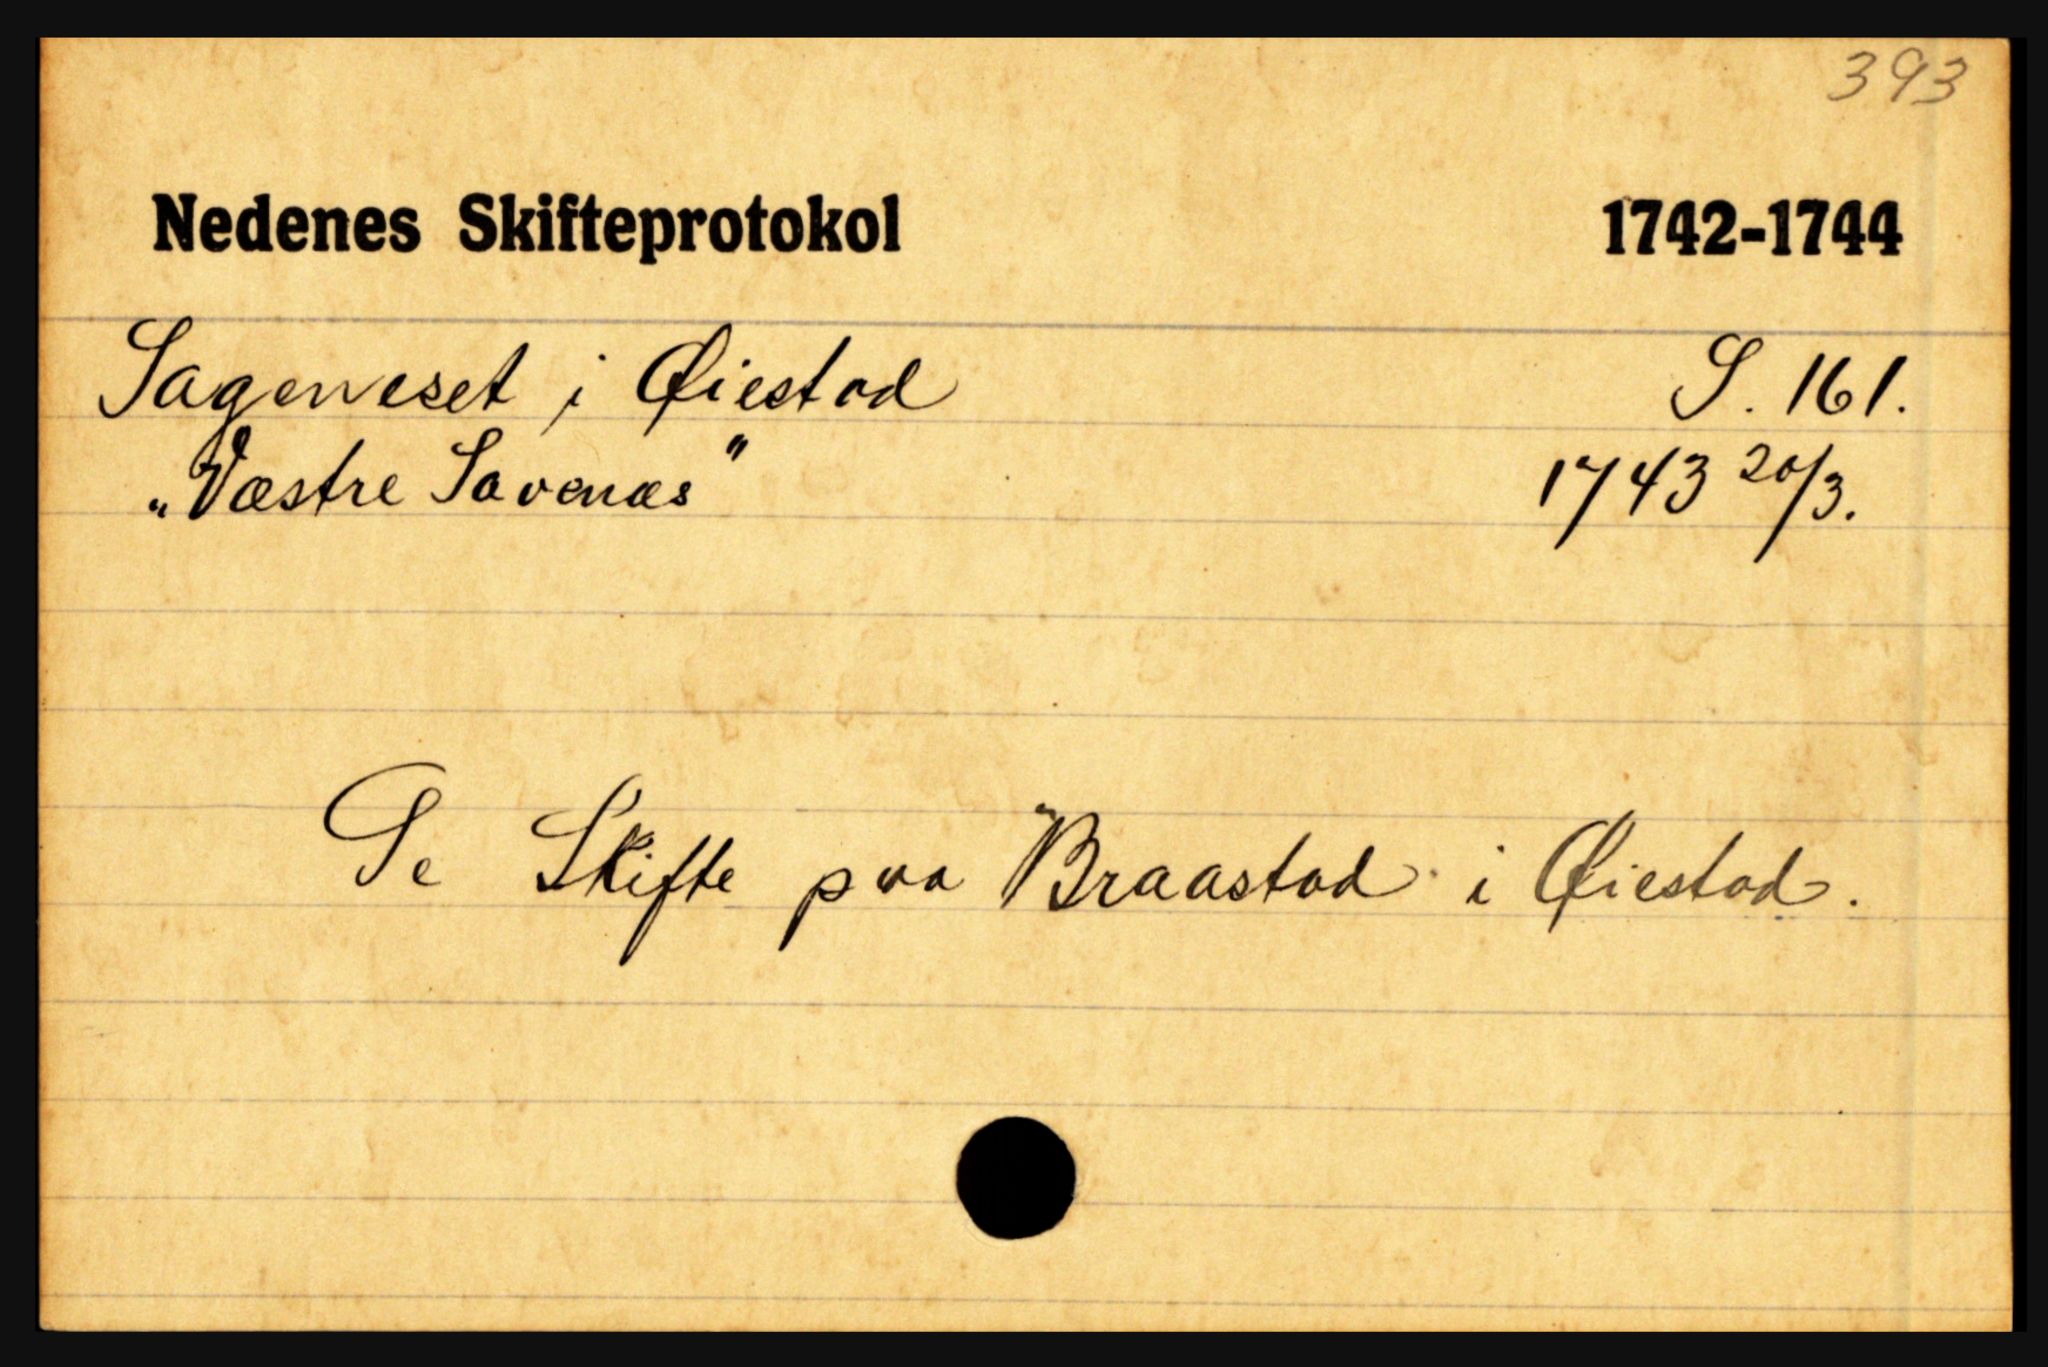 393
Nedenes Skifteprotokol 1742-1744
Sageneset i Øiestad S. 161.
„Væstre Savenæs" 1743 20/3.
Se Skifte paa Braastad i Øiestad.